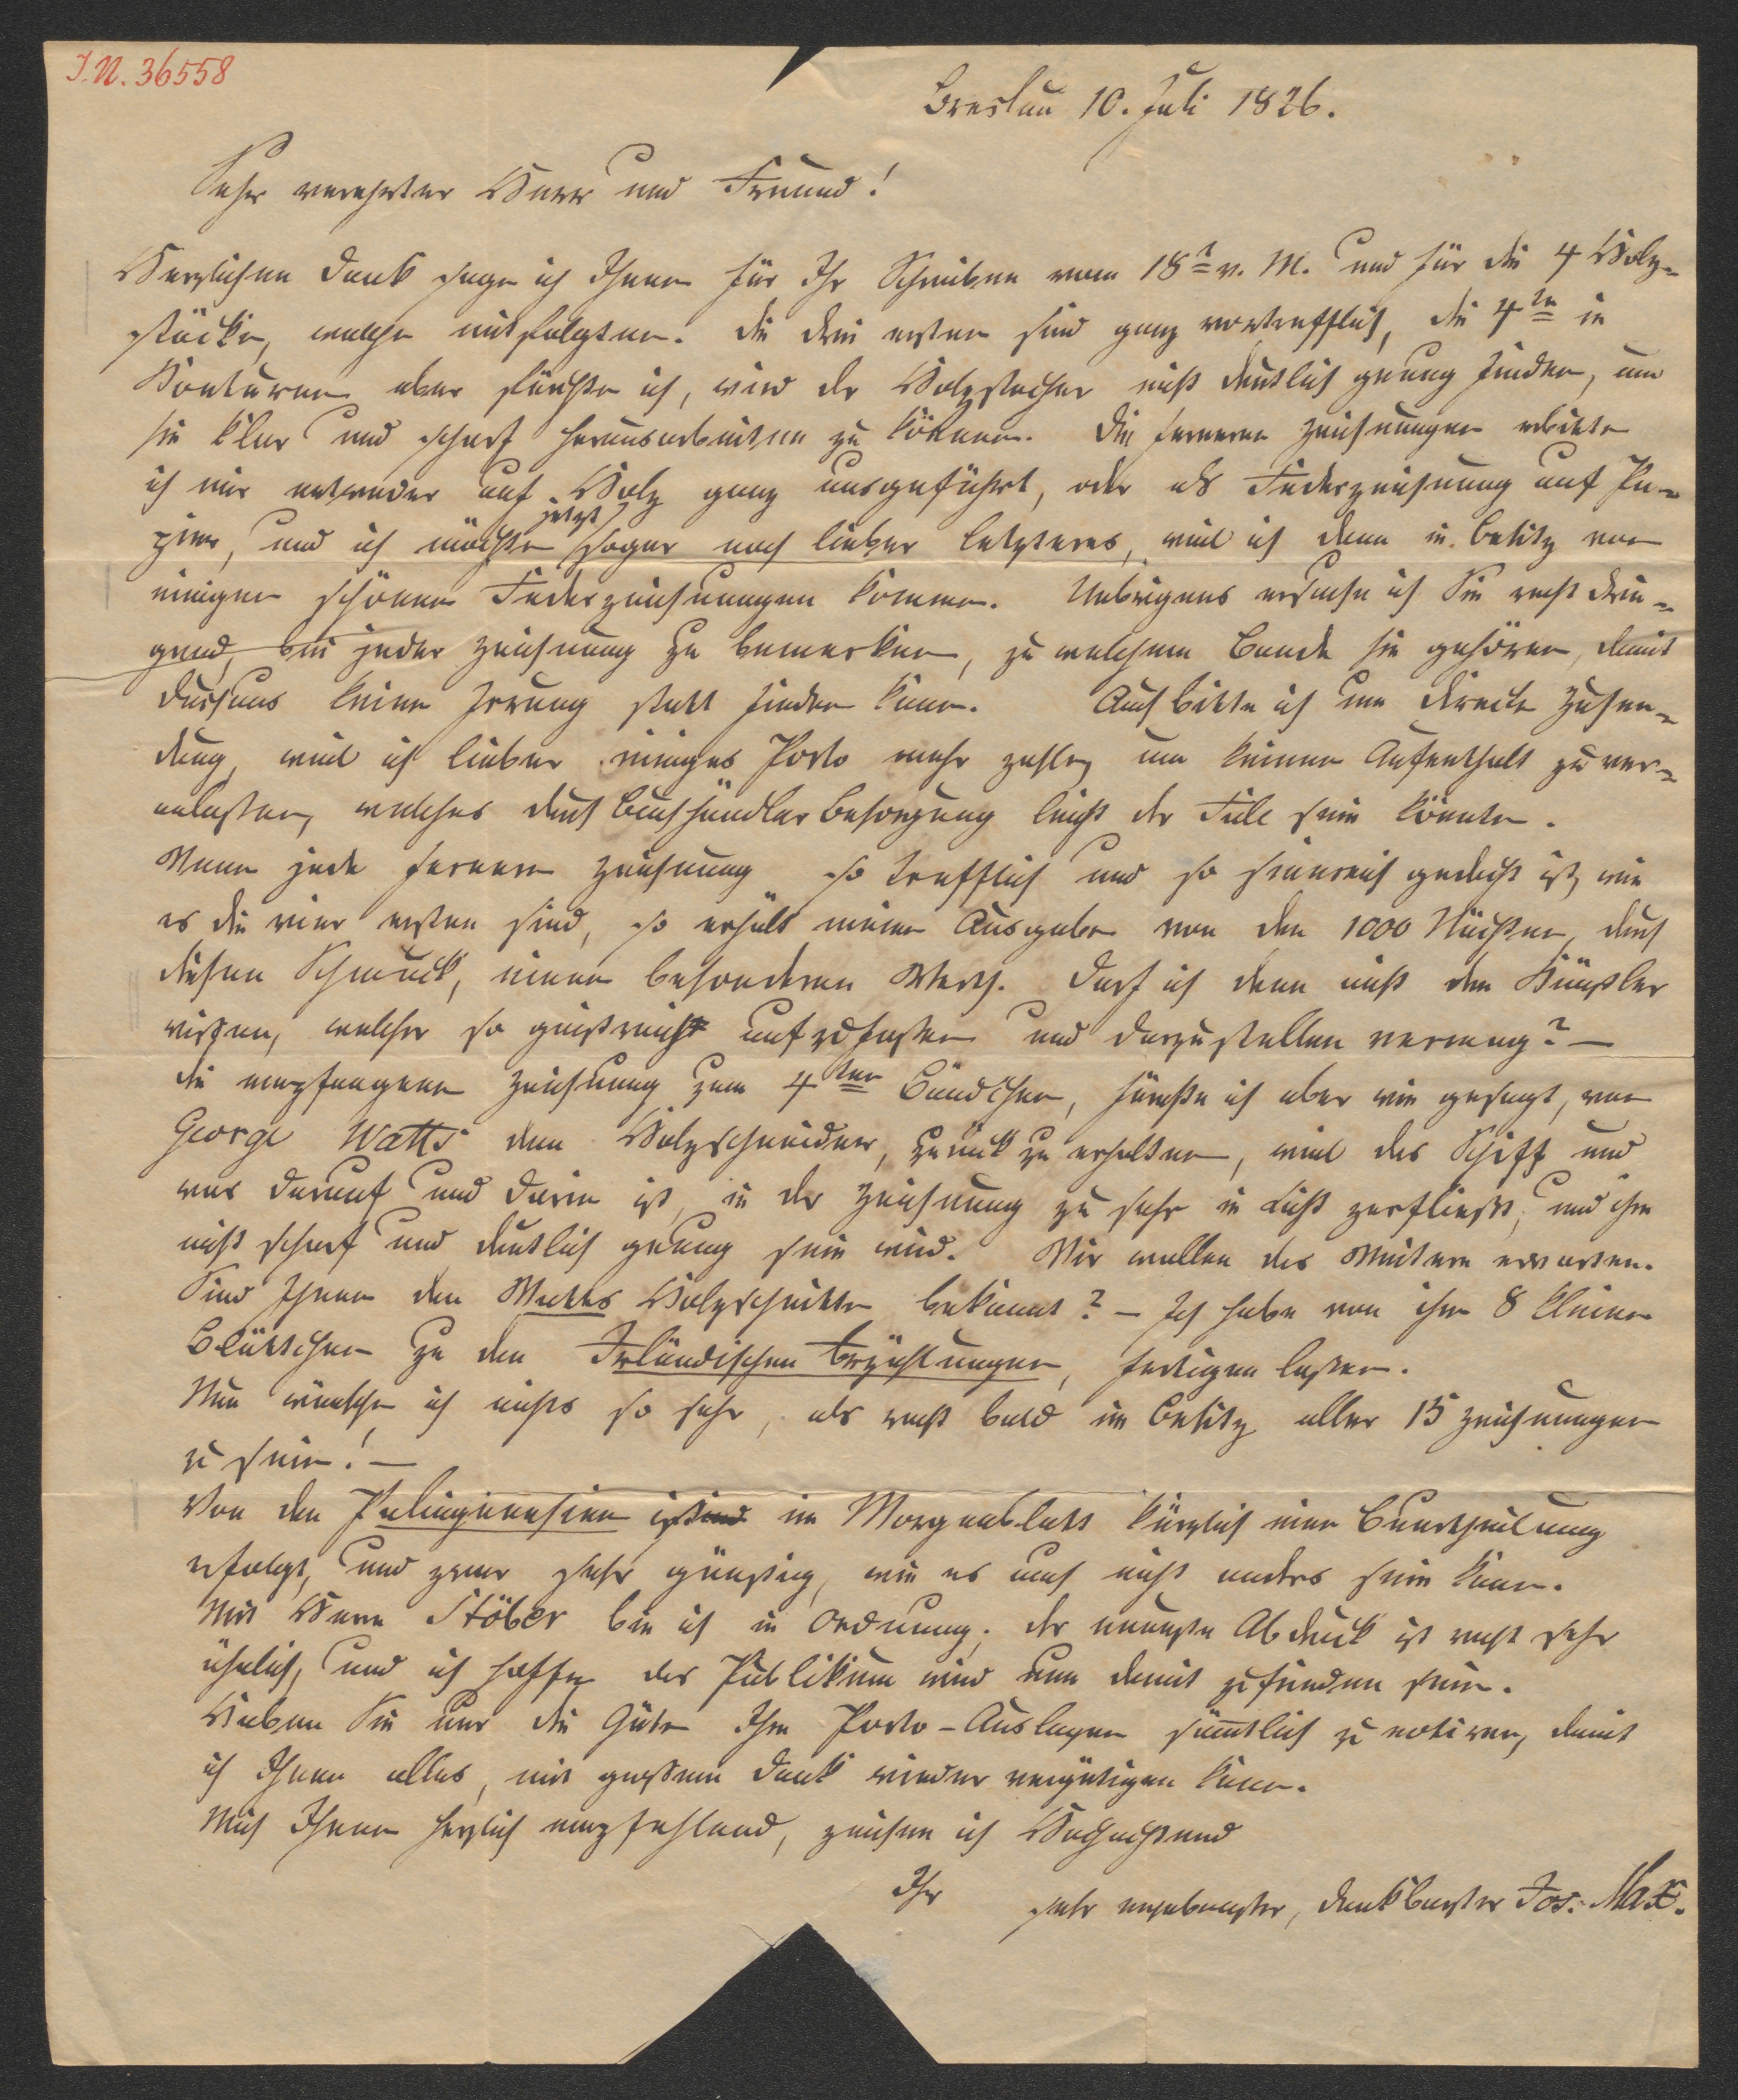 I.N. 36558
Breslau 10. Juli 1826.
Sehr verehrter Herr und Freund!
Herzlichen Dank sage ich Ihnen für Ihr Schreiben vom 18t v. M. und für die 4 Holz-
stöcke, welche mitfolgten. Die drei ersten sind ganz vortrefflich, die 4te in
Konturen aber fürchte ich, wird der Holzstecher nicht deutlich genug finden, um
sie klar und scharf herausarbeiten zu können. Die ferneren Zeichnungen erbitte
ich mir entweder auf Holz ganz ausgeführt, oder als Federzeichnung auf Pa-
pier, und ich möchte jetzt sogar noch lieber letzteres, weil ich dann in Besitz von
einigen schönen Federzeichnungen komme. Uebrigens ersuche ich Sie recht drin-
gend, bei jeder Zeichnung zu bemerken, zu welchem Bande sie gehören, damit
durchaus keine Irrung statt finden kann. Auch bitte ich um directe Zusen-
dung, weil ich lieber einiges Porto mehr zahle, um keinen Aufenthalt zu ver-
anlassen, welches durch Buchhändler Besorgung leicht der Fall sein könnte.
Wenn jede fernere Zeichnung so trefflich und so sinnreich gedacht ist, wie
es die vier ersten sind, so erhält meine Ausgabe von den 1000 Nächten, durch
diesen Schmuck, einen besonderen Werth. Darf ich denn nicht den Künstler
wissen, welcher so geistreich aufzufassen und darzustellen vermag? —
Die empfangene Zeichnung zum 4ten Bändchen, fürchte ich aber wie gesagt, von
George Watts dem Holzschneider, zurück zu erhalten, weil das Schiff und
was darauf und darin ist, in der Zeichnung zu sehr in Licht zerfliesst, und ihm
nicht scharf und deutlich genug sein wird. Wir wollen das Weitere erwarten.
Sind Ihnen den Watts Holzschnitte bekannt? — Ich habe von ihm 8 kleine
Blättchen zu den Irländischen Erzählungen, fertigen lassen.
Nun wünsche ich nichts so sehr, als recht bald im Besitz aller 15 Zeichnungen
zu sein! —
Von den Palingenesien ist im Morgenblatt kürzlich eine Beurtheilung
erfolgt, und zwar sehr günstig, wie es auch nicht anders sein kann.
Mit Herrn Stöber bin ich in Ordnung; der neueste Abdruck ist recht sehr
ähnlich, und ich hoffe, das Publikum wird nun damit zufrieden sein.
Haben Sie nur die Güte Ihre Porto-Auslagen sämtlich zu notiren, damit
ich Ihnen alles, mit großem Dank wieder vergütigen kann.
Mich Ihnen herzlich empfehlend, zeichne ich Hochachtend
Ihr sehr ergebenster, dankbarster Jos: Max.